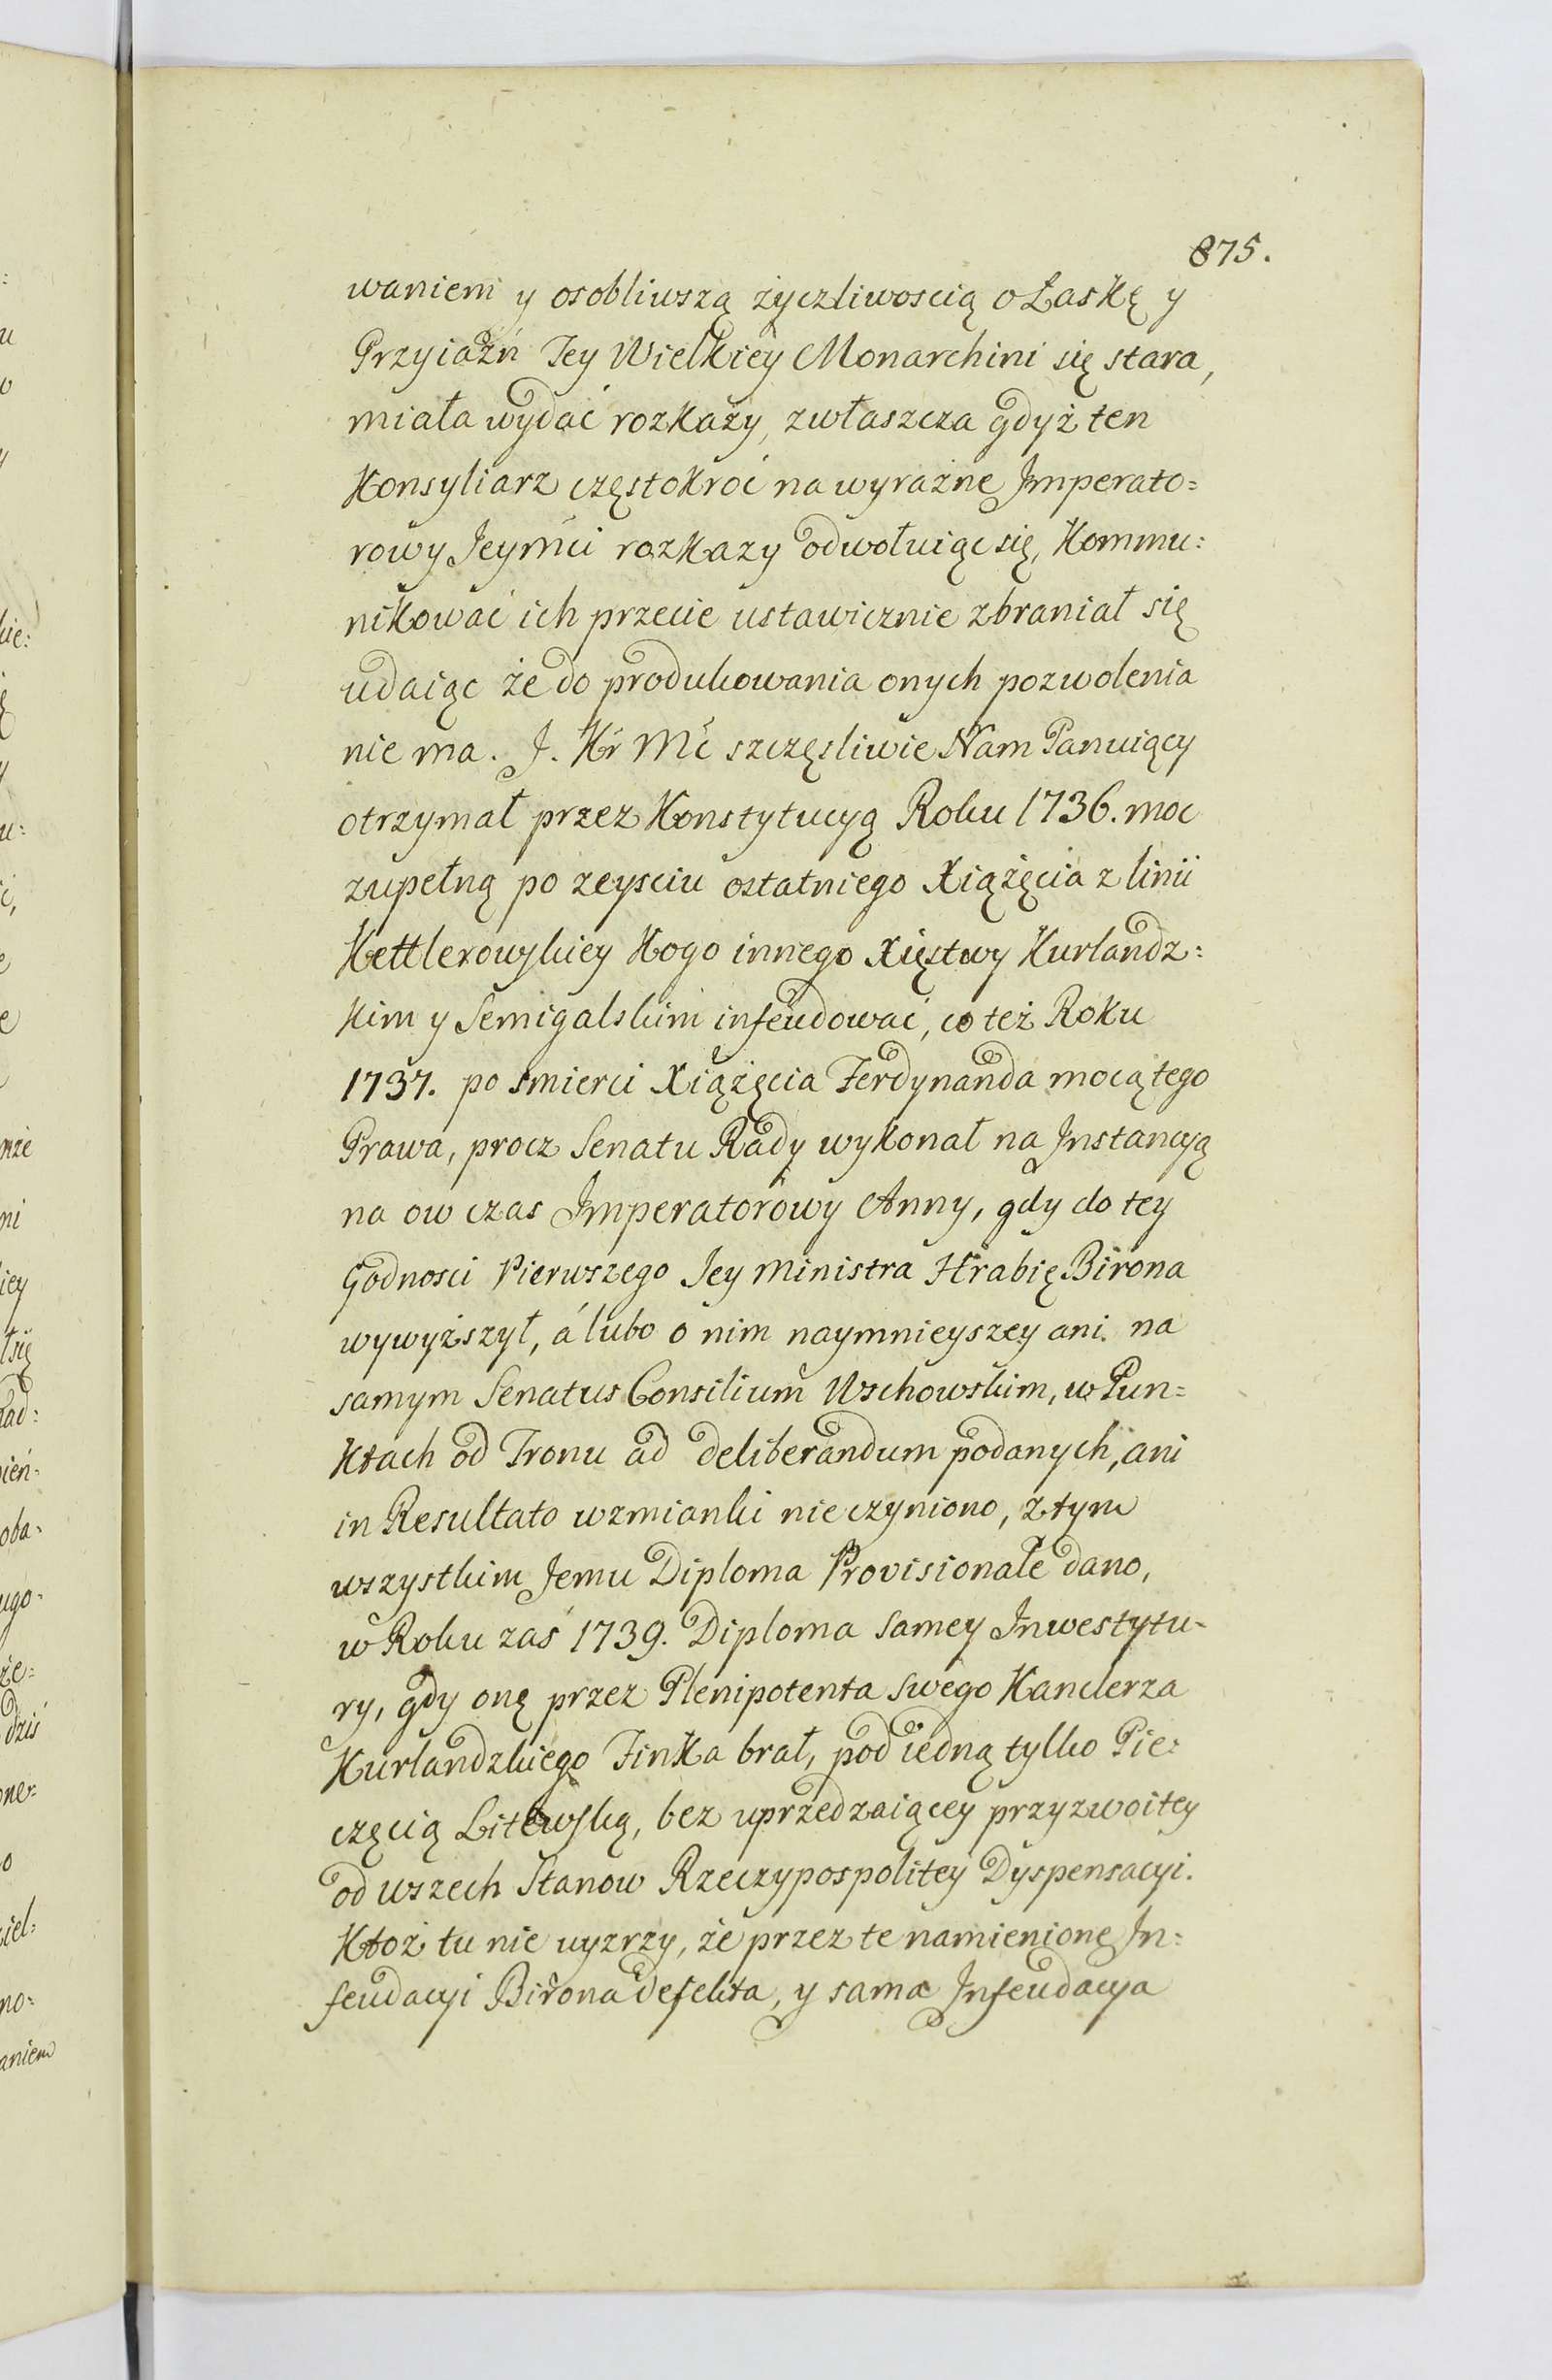 875.
waniem y osobliwszą życzliwoscią o Łaskę y
Przyiaźń Jey Wielkiey Monarchini się stara,
miała wydać rozkazy, zwłaszcza gdyż ten
Konsyliarz częstokroć na wyraźne Imperato=
rowy Jeymći rozkazy odwołuiąc się, Kommu:
nikować ich przecie ustawicznie zbraniał się
udaiąc że do produkowania onych pozwolenia
nie ma. J. Kr Mć szczęsliwie Nam Panuiący
otrzymał przez Konstytucyą Roku 1736. moc
zupełną po zeysciu ostatniego Xiążęcia z linii
Kettlerowskiey Kogo innego Xięstwy Kurlandz:
kim y Semigalskim infeudować, co też Roku
1737. po smierci Xiążęcia Ferdynanda mocą tego
Prawa, procz Senatu Rady wykonał na Instancyą
na ow czas Imperatorowy Anny, gdy do tey
Godnosci Pierwszego Jey Ministra Hrabię Birona
wywyższył, á lubo o nim naymnieyszey ani na
samym Senatus Consilium Wschowskim, w Pun=
ktach od Tronu ad deliberandum podanych, ani
in Resultato wzmianki nie czyniono, z tym
wszystkim Jemu Diploma Provisionale dano,
w Roku zaś 1739. Diploma samey Inwestytu-
ry, gdy onę przez Plenipotenta swego Kanclerza
Kurlandzkiego Finka brał, pod iedną tylko Pie:
częcią Litewską, bez uprzedzaiącey przyzwoitey
od wszech Stanow Rzeczypospolitey Dyspensacyi.
Ktoż tu nie uyzrzy, że przez te namienione In:
feudacyi Birona defekta, y sama Infeudacya